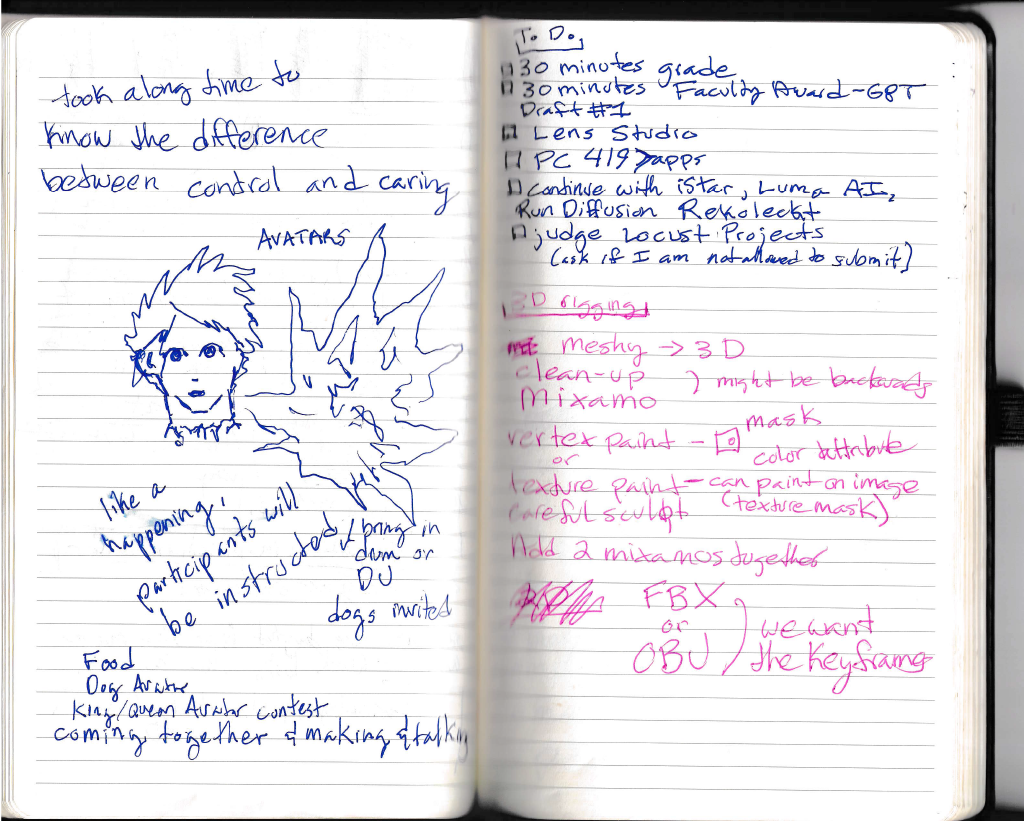 took along time to
know the difference
between control and caring
AVATARS
like a
happening,
participants will
be instructed
bring in
drum or
DJ
dogs invited
Food
Dog Avatar
King/Queen Avatar contest
coming together & making & talking
To Do,
30 minutes grade
30 minutes Faculty Award - GPT
Draft #1
Lens Studio
PC 419 > apps
continue with iStar, Luma AI,
Run Diffusion Rekoleckt
judge Locust Projects
(ask if I am not allowed to submit)
3D rigging,
meshy → 3D
clean-up ) might be backwards
Mixamo
vertex paint - mask
color attribute
or
texture paint - can paint on image
(texture mask)
careful sculpt
Add 2 mixamos together
FBX
or
OBJ
we want
the keyframes